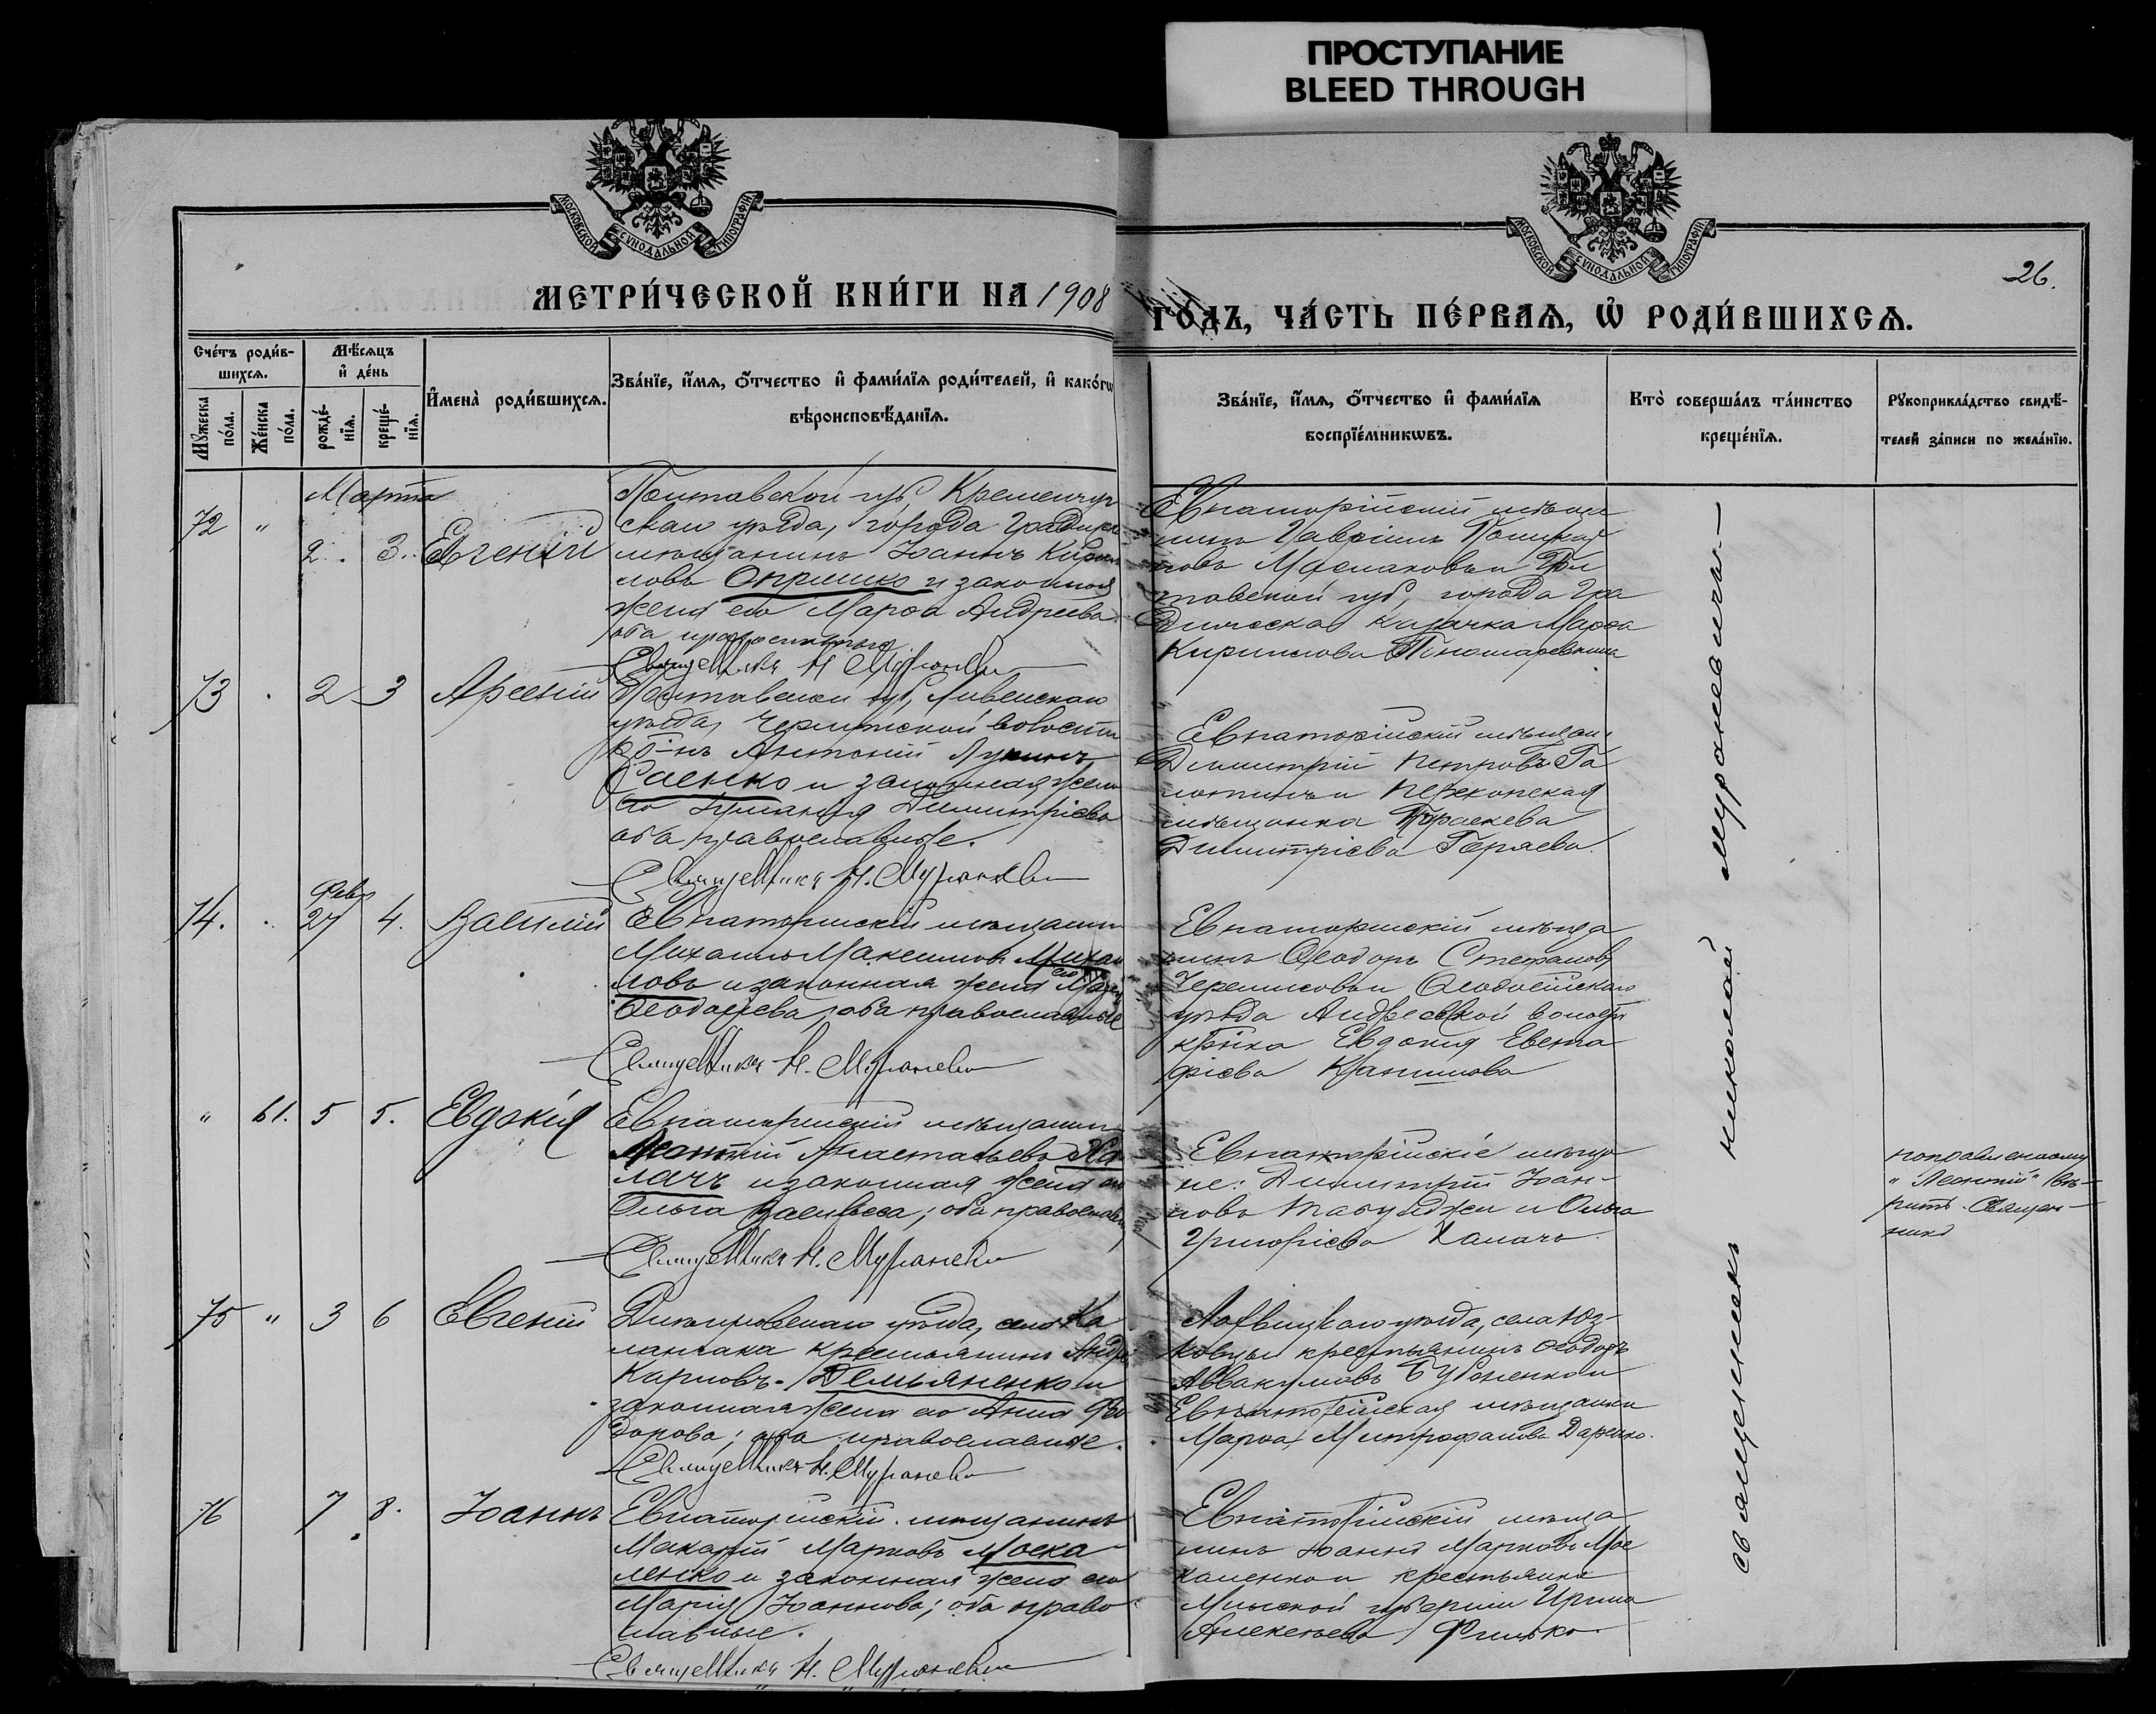 ПРОСТУПАНИЕ
BLEED THROUGH
МОСКОВСКОЙ СѴНОДАЛЬНОЙ ТИПОГРАФІИ
МОСКОВСКОЙ СѴНОДАЛЬНОЙ ТИПОГРАФІИ
26.
МЕТРИ́ЧЕСКОЙ КНИ́ГИ НА 1908
ГО́ДЪ, ЧА́СТЬ ПЕ́РВАЯ, Ѡ РОДИ́ВШИХСЯ.
Сче́тъ роди́в-
шихся.
Мѣ́сяцъ
и де́нь
Мꙋ́жеска по́ла.
Же́нска по́ла.
рожде́-
нїя.
креще́-
нїя.
И҆мена̀ роди́вшихся.
Зва́нїе, и҆́мя, о҆́тчество и҆ фами́лїя роди́телей, и҆ како́гѡ
вѣроисповѣ́данїя.
Зва́нїе, и҆́мя, о҆́тчество и҆ фами́лїя
воспрїе́мникѡвъ.
Кто̀ соверша́лъ та́инство
креще́нїя.
Рꙋкоприкла́дство свидѣ́-
телей за́писи по жела́нїю.
Марта
72 " 2. 3. Евгеній
Полтавской губ Кременчуг
скаго уѣзда, города Градижск
мѣщанинъ Іоаннъ Кирил
ловъ Опришко и законная
жена его Марѳа Андреева
оба православные
Священникъ Н. Мураневич
Евпаторійскій мѣща
нинъ Гавріилъ
новъ Маслаковъ и Пол
тавской губ, города Гра
дижска казачка Марѳа
Кириллова Пономаревкина
73 2 3 Арсеній
Полтавской губ,
уѣзда, волости
кр-нъ Антоній Лукинъ
Саенко и законная жена
его Димитріева
оба православные.
Священникъ Н. Мураневич
Евпаторійскій мѣщан
Димитрій Петровъ Га
и Перекопская
мѣщанка Параскева
Димитріева Горяева.
Фев
74. 27 4. Василій
Евпаторійскій мѣщанин
Михаилъ Максимов Михай
ловъ и законная жена его
Ѳеодорова, оба православные
Священникъ Н. Мураневич
Евпаторійскій мѣща
нинъ Ѳеодоръ Стефанов
Черемисовъ и Ѳеодосійскаго
уѣзда Андреевской волости
кр-нка Евдокія Евста
фіева
" 61. 5 5. Евдокія
Евпаторійскій мѣщанин
Леонтій Анастасьевъ Ха
лачъ и законная жена его
Ольга Васильева; оба православн
Священникъ Н. Мураневич
Евпаторійскіе мѣща
не: Димитрій Іоан-
новъ Табулджи и Ольга
Григорьева Халачъ.
поправленному
"Леонтій" вѣ-
рить. Священ-
никъ
75 " 3 6 Евгеній
Днѣпровскаго уѣзда, села Ка
ланчака крестьянинъ Андре
Карповъ Демьяненко и
законная жена его Анна Ѳео
дорова; оба православные.
Священникъ Н. Мураневич
Лохвицкаго уѣзда, села Юс-
ковцы крестьянинъ Ѳеодоръ
Аввакумовъ и
Евпаторійская мѣщанка
Марѳа Митрофанова
76 7 8. Іоаннъ
Евпаторійскій мѣщанинъ
Макарій Марковъ Моска
ленко и законная жена его
Марія Іоаннова; оба право
славные.
Священникъ Н. Мураневич
Евпаторійскій мѣща
нинъ Іоаннъ Марковъ Мос
каленко и крестьянка
Минской губерніи Ирина
Алексѣева
священникъ николай мураневичъ